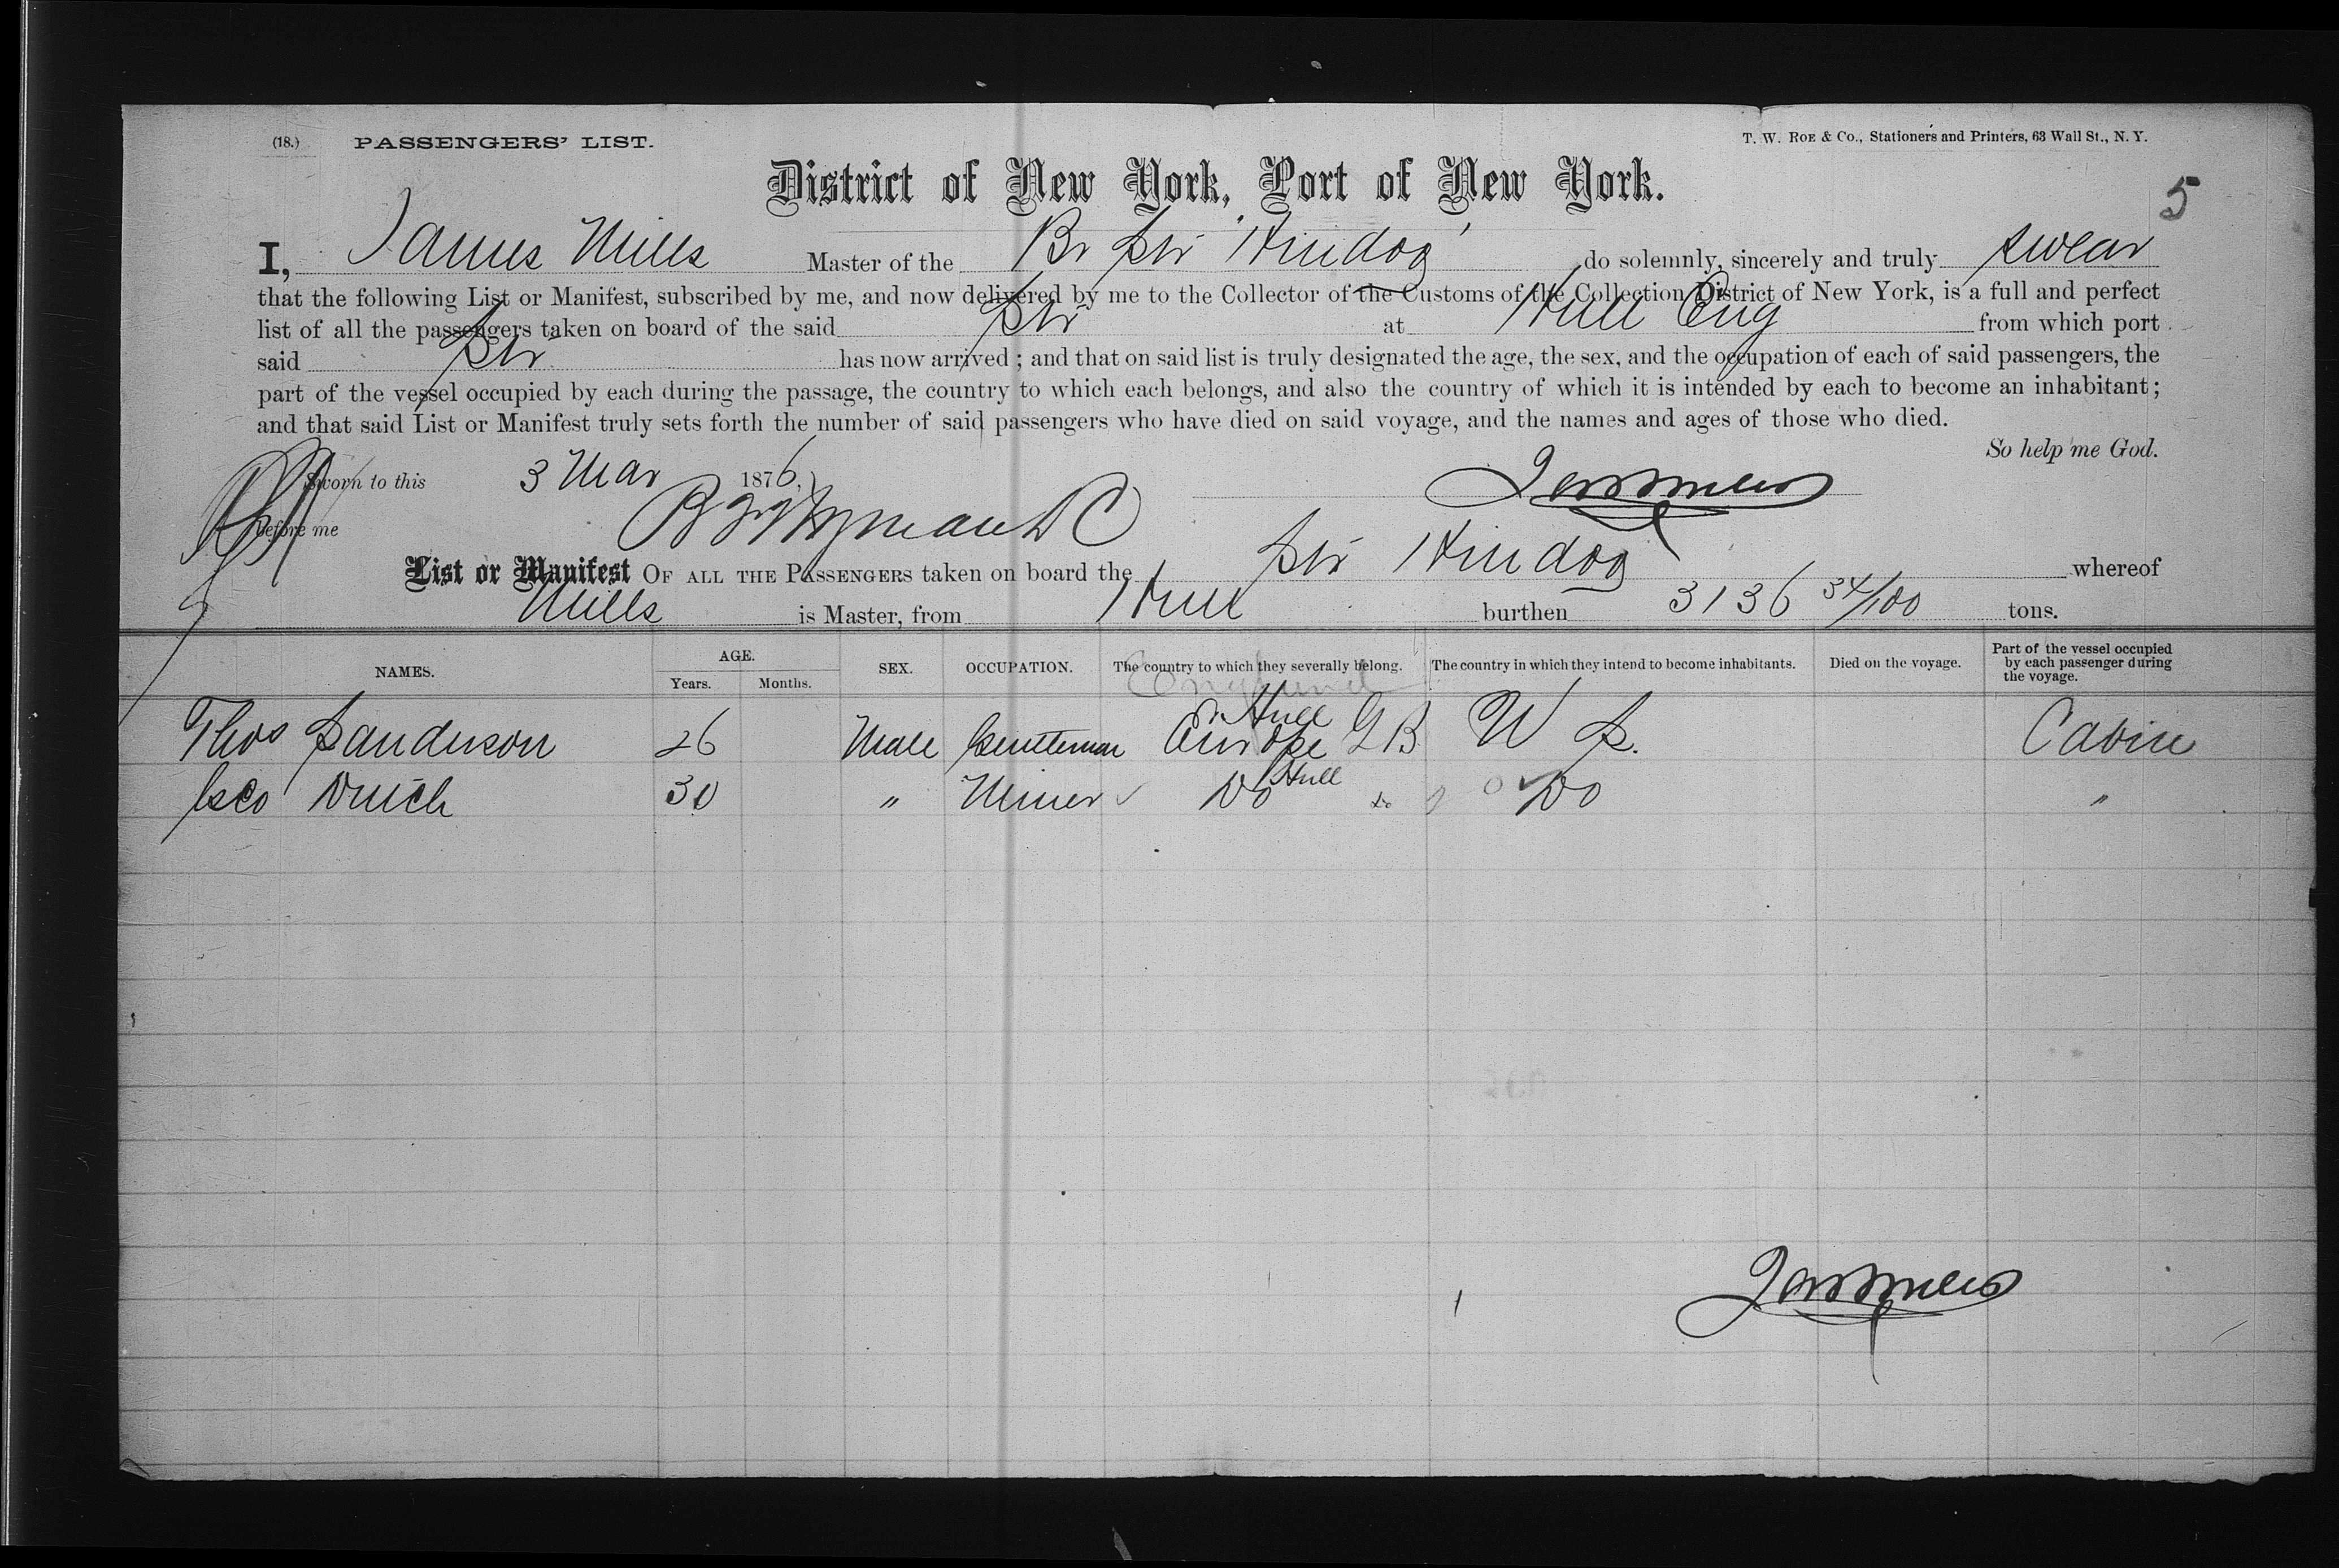 (18.) PASSENGERS' LIST. T. W. ROE & Co., Stationers and Printers, 63 Wall St., N. Y.
District of New York, Port of New York.
5
I, James Mills Master of the Br Str 'Hindoo' do solemnly, sincerely and truly swear
that the following List or Manifest, subscribed by me, and now delivered by me to the Collector of the Customs of the Collection District of New York, is a full and perfect
list of all the passengers taken on board of the said Str at Hull Eng from which port
said Str has now arrived ; and that on said list is truly designated the age, the sex, and the occupation of each of said passengers, the
part of the vessel occupied by each during the passage, the country to which each belongs, and also the country of which it is intended by each to become an inhabitant ;
and that said List or Manifest truly sets forth the number of said passengers who have died on said voyage, and the names and ages of those who died.
So help me God.
Sworn to this 3 Mar 1876, Jas Mills
before me
List or Manifest OF ALL THE PASSENGERS taken on board the Str Hindoo whereof
Mills is Master, from Hull burthen 3136 34/100 tons.
NAMES. AGE. Years. Months. SEX. OCCUPATION. The country to which they severally belong. The country in which they intend to become inhabitants. Died on the voyage. Part of the vessel occupied by each passenger during the voyage.
England
Hull
Thos Sanderson 26 Male Gentleman Europe G B U S. Cabin
Hull
Geo 30 " Miner Do do Do "
Jas Mills